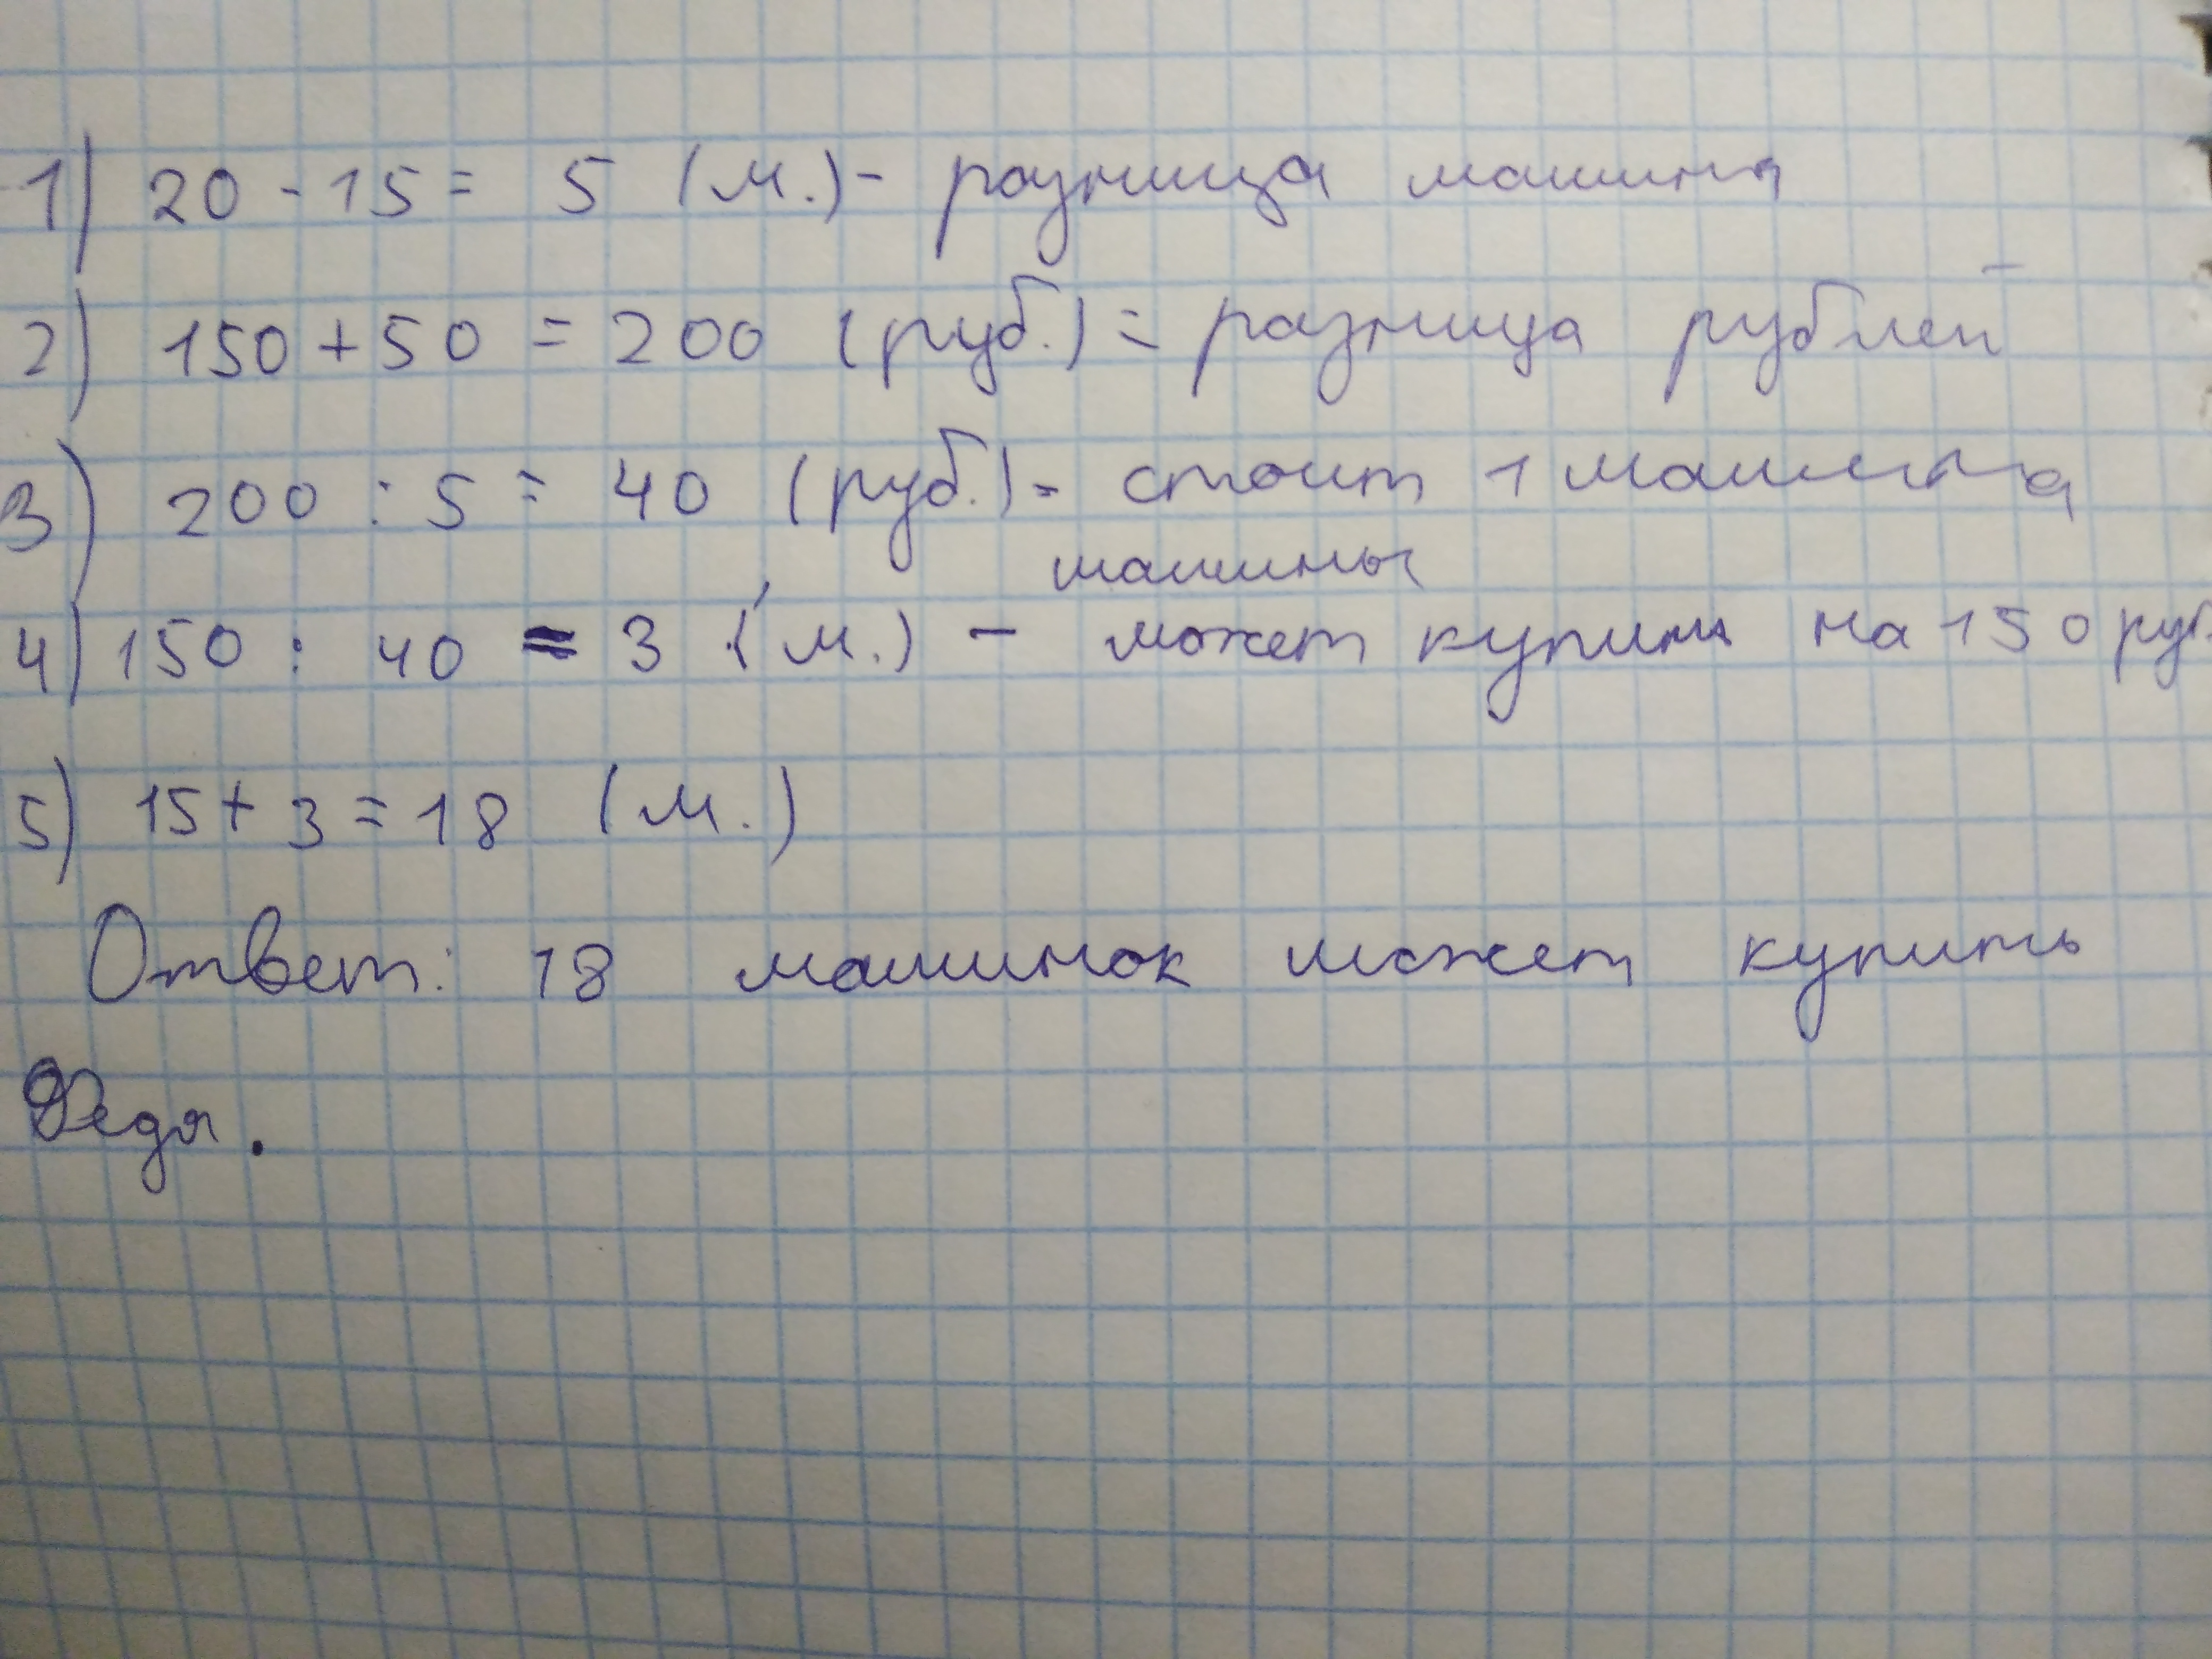 1) 20 - 15 = 5 (м.) - разница машин
2) 150 + 50 = 200 (руб.) = разница рублей
3) 200 : 5 = 40 (руб.) - стоит 1 машина
машины
4) 150 : 40 ≈ 3 (м.) - может купить на 150 руб
5) 15 + 3 = 18 (м.)
Ответ: 18 машинок может купить
Федя.